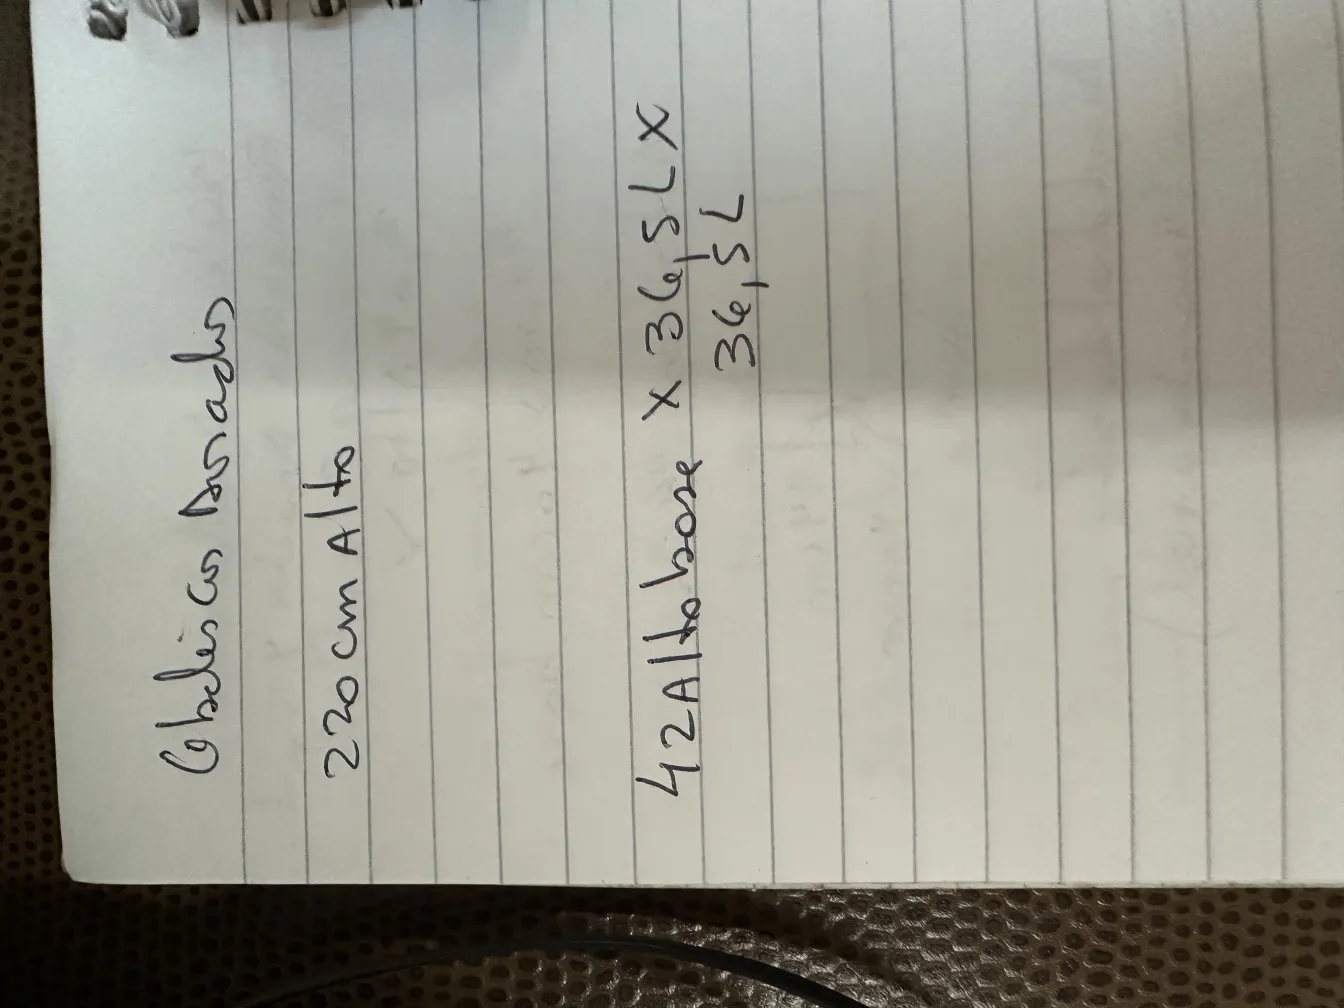 Obeliscos Dorados
220cm Alto
42 Alto base x 36,5 L x
36,5 L